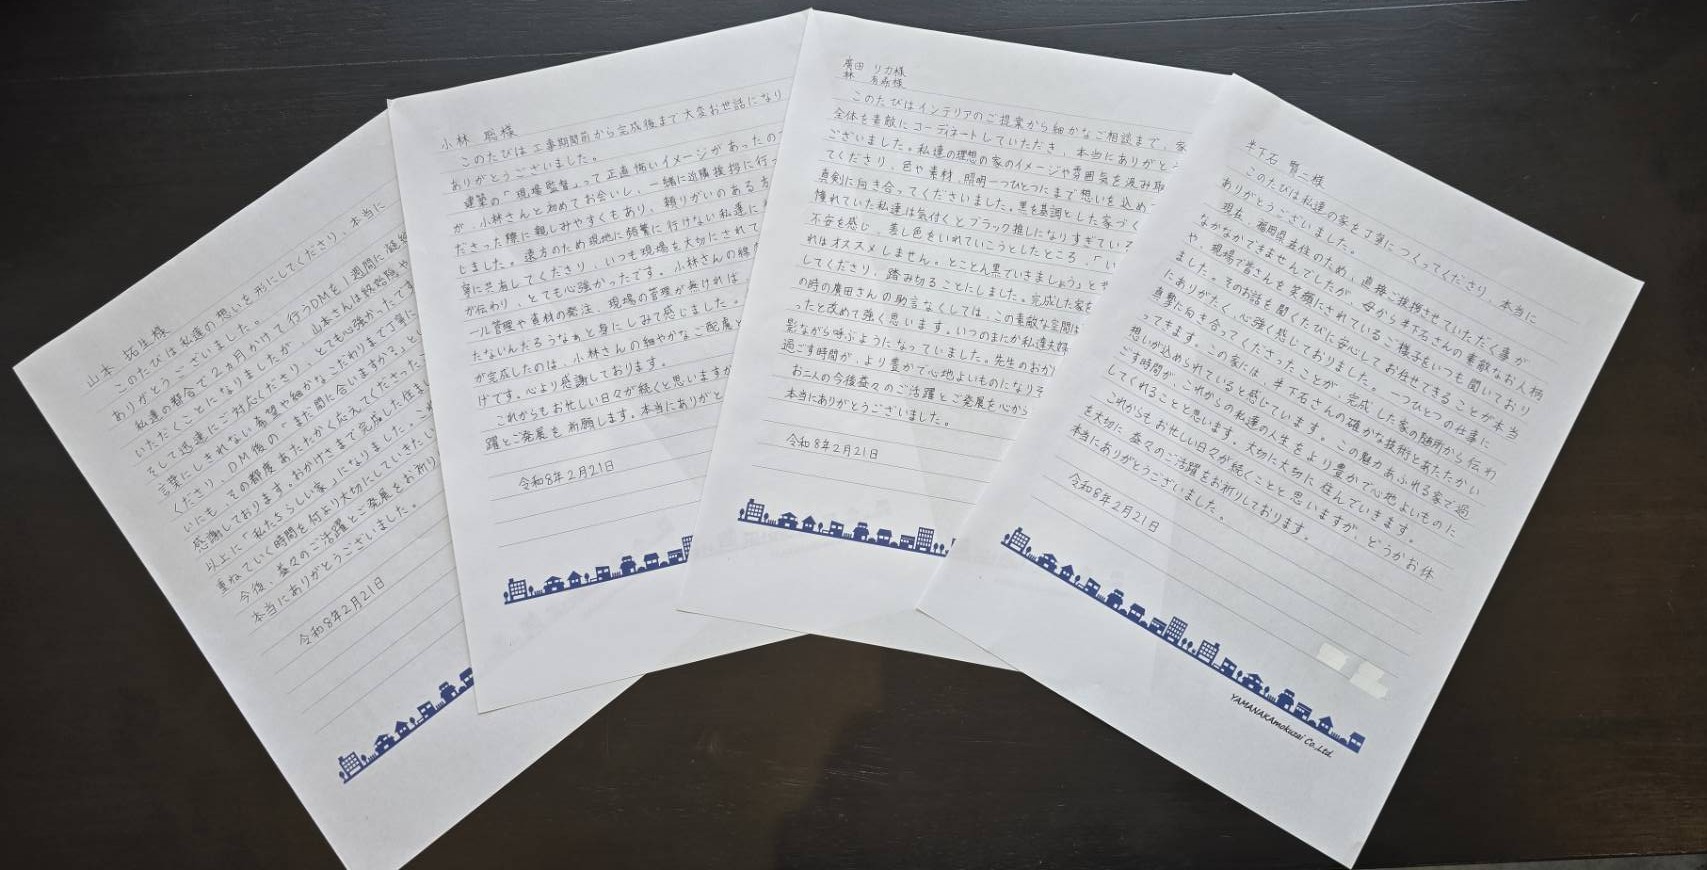 山本 拓生様
このたびは私達の想いを形にしてくださり、本当に
ありがとうございました。
私達の都合で2ヵ月かけて行うDMを1週間に凝縮
いただくことになりましたが、山本さんは設計段階や
そして迅速にご対応くださり、とても心強かったです
言葉にしきれない希望や細かなこだわりまで丁寧に
くださり、DM後の「まだ間に合いますか?」と
いにも、その都度あたたかく応えてくださった
感謝しております。おかげさまで完成した住まい
以上に「私たちらしい家」になりました。これ
重ねていく時間を何より大切にしていきたい
今後、益々のご活躍とご発展をお祈り
本当にありがとうございました。
令和8年2月21日
小林 聡様
このたびは工事期間前から完成後まで大変お世話になり
ありがとうございました。
建築の「現場監督」って正直怖いイメージがあったの
が、小林さんと初めてお会いし、一緒に近隣挨拶に行っ
ださった際に親しみやすくもあり、頼りがいのある方
じました。遠方のため現地に頻繁に行けない私達に
寧に共有してくださり、いつも現場を大切にされて
が伝わり、とても心強かったです。小林さんの
ール管理や資材の発注、現場の管理が無ければ
たないんだろうなぁと身にしみて感じました。
が完成したのは、小林さんの細やかなご配慮と
げです。心より感謝しております。
これからもお忙しい日々が続くと思いますが
躍とご発展を祈願します。本当にありがと
令和8年2月21日
廣田 リカ様
林
このたびはインテリアのご提案から細かなご相談まで、家
全体を素敵にコーディネートしていただき、本当にありがとう
ございました。私達の理想の家のイメージや雰囲気を汲み取
てくださり、色や素材、照明一つひとつにまで想いを込め
真剣に向き合ってくださいました。黒を基調とした家づく
憧れていた私達は気付くとブラック推しになりすぎている
不安を感じ、差し色をいれていこうとしたところ、「い
れはオススメしません。とことん黒でいきましょう」と
してくださり、踏み切ることにしました。完成した家を
の時の廣田さんの助言なくしては、この素敵な空間は
ったと改めて強く思います。いつのまにか私達夫婦
影ながら呼ぶようになっていました。先生のおか
過ごす時間が、より豊かで心地よいものになりそ
お二人の今後益々のご活躍とご発展を心から
本当にありがとうございました。
令和8年2月21日
半下石 賢二様
このたびは私達の家を丁寧につくってくださり、本当に
ありがとうございました。
現在、福岡県在住のため、直接ご挨拶させていただく事が
なかなかできませんでしたが、母から半下石さんの素敵なお人柄
や、現場で皆さんを笑顔にされているご様子をいつも聞いており
ました。そのお話を聞くたびに安心してお任せできることが本当
にありがたく、心強く感じておりました。一つひとつの仕事に
真摯に向き合ってくださったことが、完成した家の随所から伝わ
ってきます。この家には、半下石さんの確かな技術とあたたかい
想いが込められていると感じています。この魅力あふれる家で過
ごす時間が、これからの私達の人生をより豊かで心地よいものに
してくれることと思います。大切に大切に住んでいきます。
これからもお忙しい日々が続くことと思いますが、どうかお体
を大切に、益々のご活躍をお祈りしております。
本当にありがとうございました。
令和8年2月21日
YAMANAKAmokuzai Co.,Ltd.